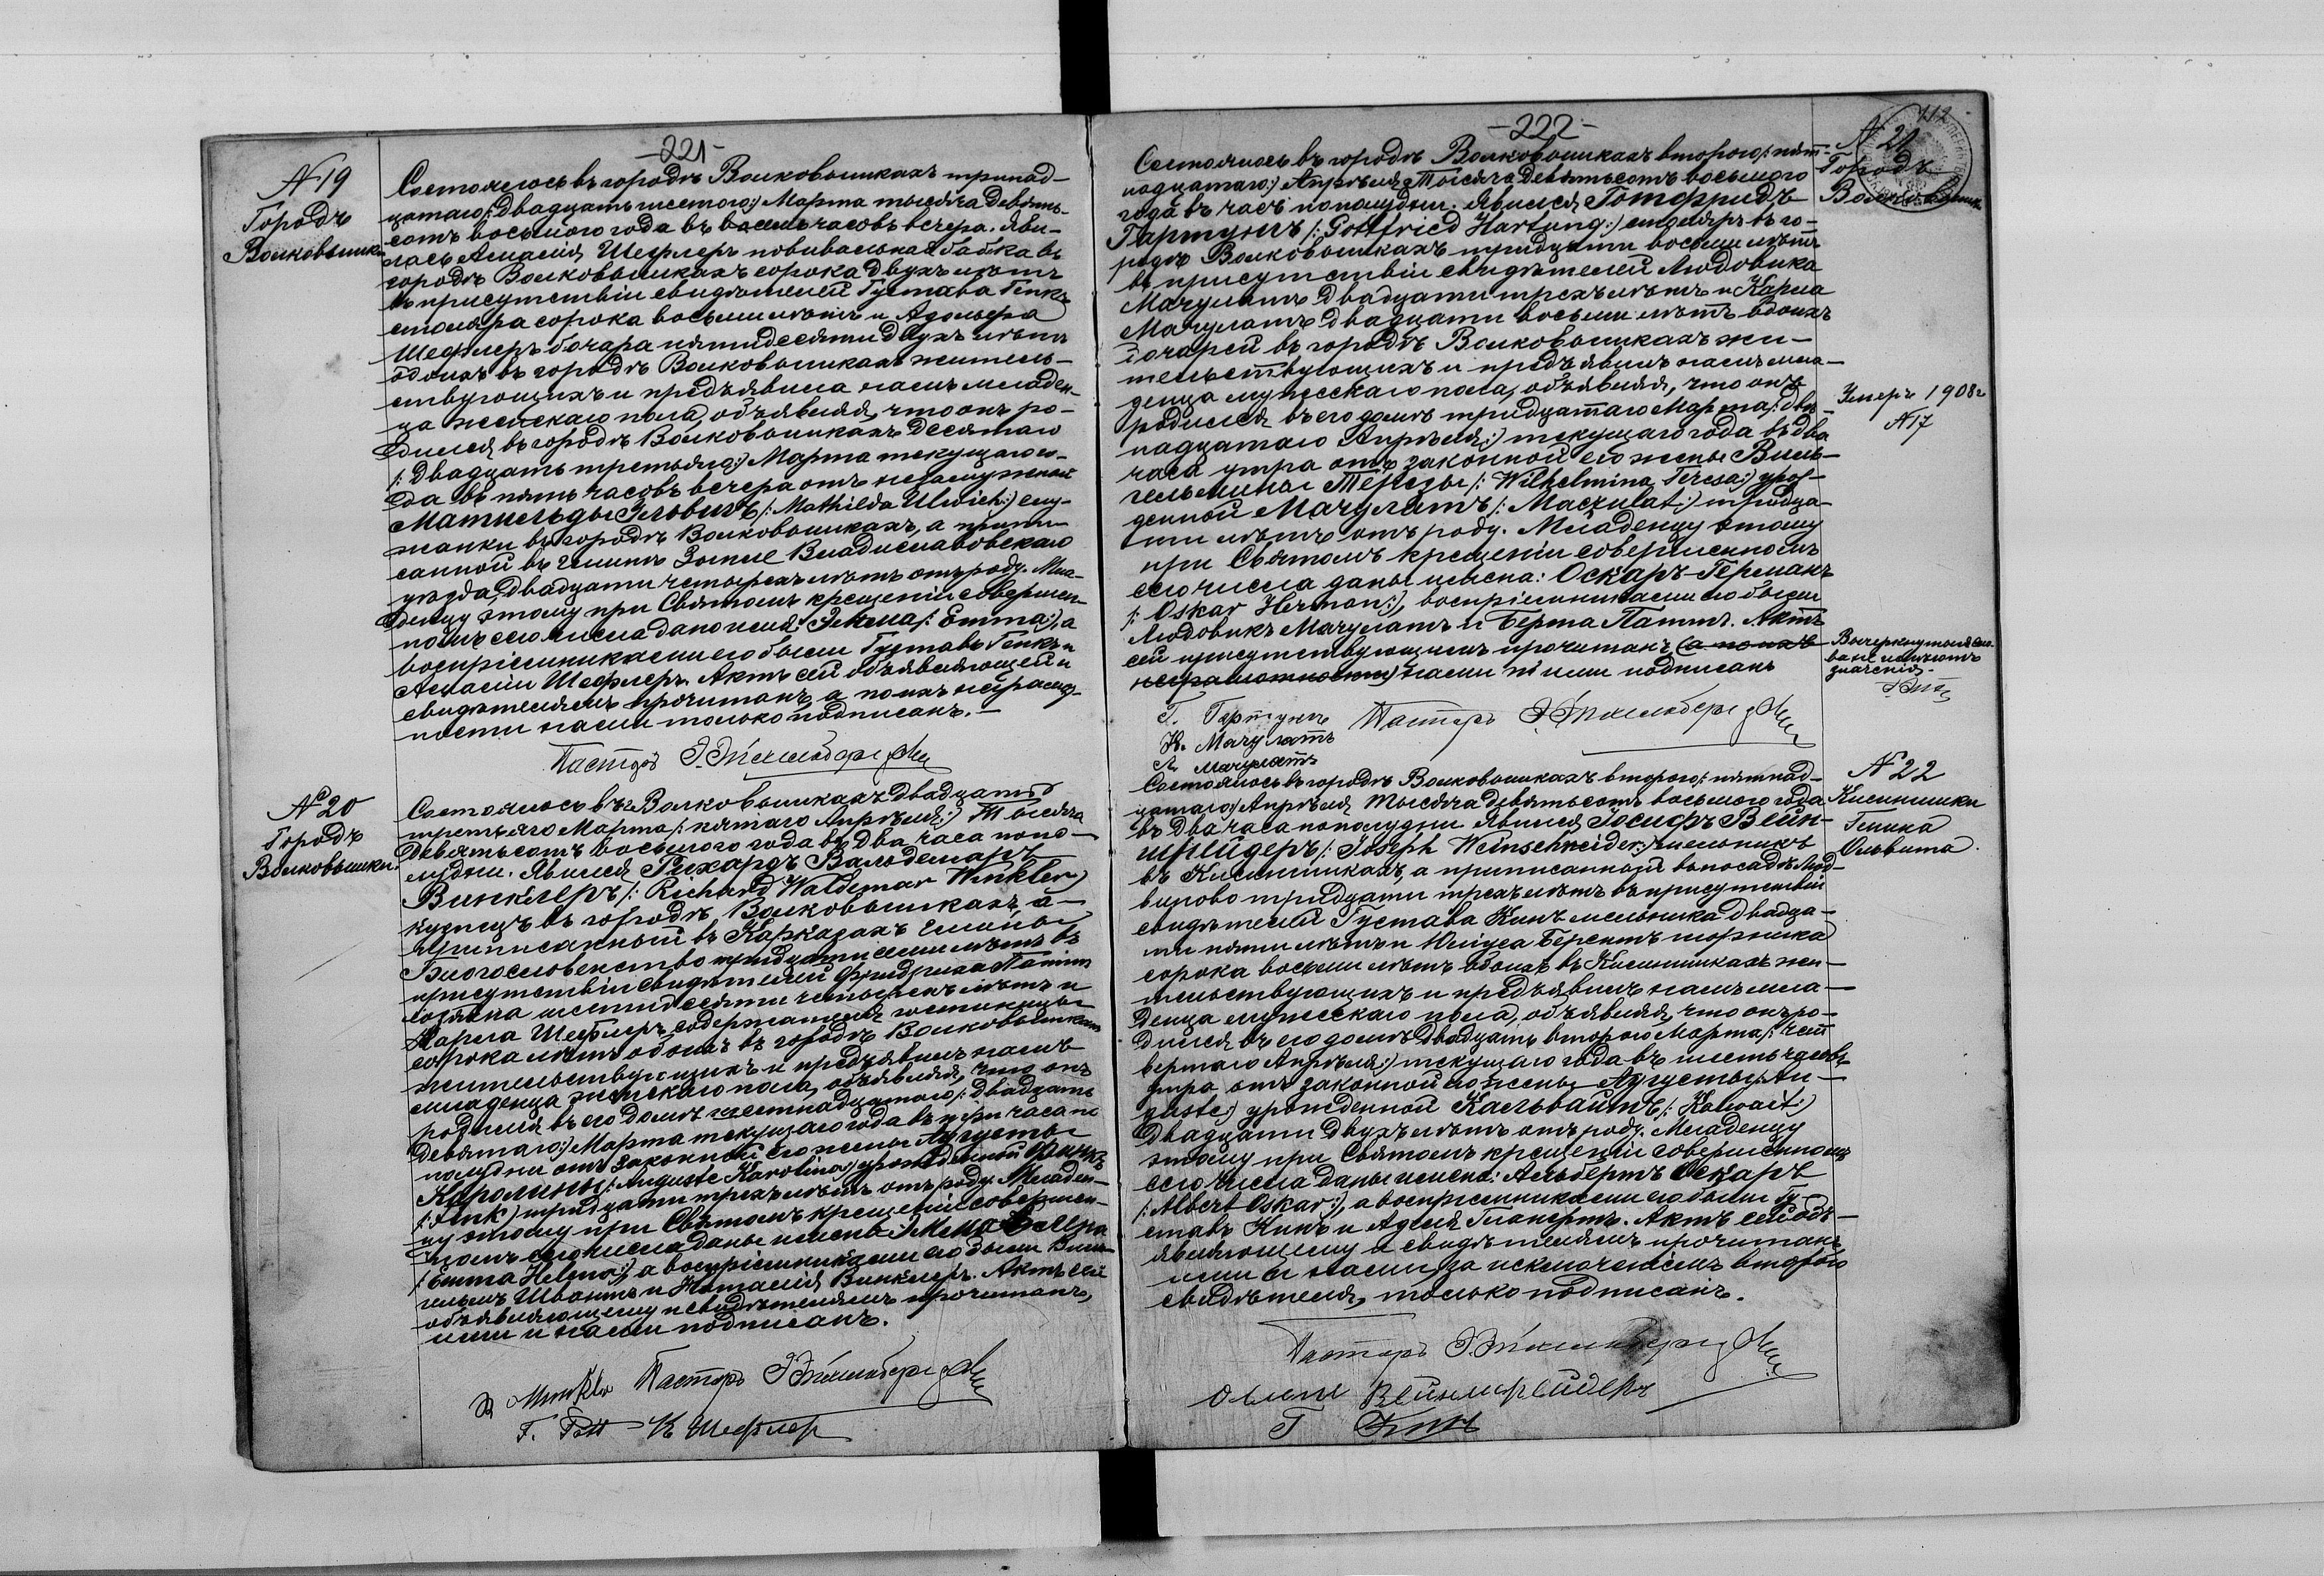 -221-
N 19
Городъ
Волковышки
Состоялось въ городѣ Волковышкахъ тринад-
цатаго /:двадцать шестого:/ Марта тысяча девять-
сотъ восьмого года въ восемь часовъ вечера. Яви-
лась Амалія Шефлеръ повивальная бабка въ
городѣ Волковышкахъ сорока двухъ лѣтъ
въ присутствіи свидѣтелей Густава Генкъ
столяра сорока восьми лѣтъ и Адольфа
Шефлеръ бочара пятидесяти двухъ лѣтъ
обоихъ въ городѣ Волковышкахъ житель-
ствующихъ и предъявила намъ младен-
ца женскаго пола, объявляя, что онъ ро-
дился въ городѣ Волковышкахъ десятаго
/:двадцать третьяго:/ Марта текущаго го-
да въ пять часовъ вечера отъ незамужней
Матильды Ульвихъ /:Mathilda Ulwich:/ слу-
жанки въ городѣ Волковышкахъ, а припи-
санной въ гминѣ Зыпле Владиславовскаго
уѣзда, двадцати четырехъ лѣтъ отъ роду. Мла-
денцу этому при Святомъ крещеніи совершен-
номъ сего числа дано имя: Эмма /:Emma:/, а
воспріемниками его были Густавъ Генкъ и
Амалія Шефлеръ. Актъ сей объявляющей и
свидѣтелямъ прочитанъ, а по ихъ неграмот-
ности нами только подписанъ.-
Пасторъ
N 20
Городъ
Волковышки.
Состоялось въ г. Волковышкахъ двадцать
третьяго Марта /:пятаго Апрѣля:/ Тысяча
девятьсотъ восьмого года въ два часа попо-
лудни. Явился Рихардъ Вальдемаръ
Винклеръ /:Richard Waldemar Winkler)
кузнецъ въ городѣ Волковышкахъ, а-
приписанный въ гмины
Благословенство тридцати семи лѣтъ въ
присутствіи свидѣтелей Фридриха
хозяина шестидесяти четырехъ лѣтъ и
Карла Шефлеръ, содержателя гостиницы
сорока лѣтъ обоихъ въ городѣ Волковышкахъ
жительствующихъ и предъявилъ намъ
младенца женскаго пола, объявляя, что онъ
родился въ его домѣ шестнадцатаго /:двадцать
девятаго:/ Марта текущаго года въ три часа по
полудни отъ законной его жены Августы
Каролины /:Auguste Karolina:/ урожденной Финкъ
/:Fink) тридцати трехъ лѣтъ отъ роду. Младен-
цу этому при Святомъ крещеніи совершен-
номъ сего числа даны имена: Эмма Елена
/:Emma Helena:/, а воспріемниками его были Виль-
гельмъ Швантъ и Наталія Винклеръ. Актъ сей
объявляющему и свидѣтелямъ прочитанъ,
ими и нами подписанъ.
Пасторъ
К. Шефлер
-222-
112
N 21
Городъ
Волковышки
Состоялось въ городѣ Волковышкахъ второго /:пят-
надцатаго:/ Апрѣля Тысяча девятьсотъ восьмого
года въ часъ пополудни. Явился Готфридъ
Гартунгъ /:Gottfried Hartung:/ столяръ въ го-
родѣ Волковышкахъ тридцати восьми лѣтъ
въ присутствіи свидѣтелей Людовика
Мачулатъ двадцати трехъ лѣтъ и Карла
Мачулатъ двадцати восьми лѣтъ обоихъ
бочарей въ городѣ Волковышкахъ жи-
тельствующихъ и предъявилъ намъ мла-
денца мужескаго пола, объявляя, что онъ
родился въ его домѣ тридцатаго Марта /:двѣ-
надцатаго Апрѣля:/ текущаго года въ два
часа утра отъ законной его жены Виль-
гельмины Терезы /:Wilhelmina Teresa:/ урож-
денной Мачулатъ /:Maczulat:/ тридца-
ти лѣтъ отъ роду. Младенцу этому
при Святомъ крещеніи совершенномъ
сего числа даны имена: Оскаръ-Германъ
/:Oskar Herman:/, воспріемниками его были
Людовикъ Мачулатъ и Берта Паттъ. Актъ
сей присутствующимъ прочитанъ (а по ихъ
неграмотности) нами и ими подписанъ
Умеръ 1908 г
N 17
Вычеркнутыя сло-
ва не имѣютъ
значенія.
Г. Гартунгъ
К. Мачулатъ
Л. Мачулатъ
Пасторъ
N 22
Гмина
Ольвита.
Состоялось въ городѣ Волковышкахъ второго /:пятнад-
цатаго:/ Апрѣля Тысяча девятьсотъ восьмого года
въ два часа пополудни Явился Іосифъ Вейн-
шнейдеръ /:Joseph Weinschneider:/ мельникъ
въ а приписанный въ посадѣ Люд-
виново тридцати трехъ лѣтъ въ присутствіи
свидѣтелей Густава Кинъ мельника двадца-
ти пяти лѣтъ и Юліуса Берентъ
сорока восьми лѣтъ обоихъ въ жи-
тельствующихъ и предъявилъ намъ мла-
денца мужескаго пола, объявляя, что онъ ро-
дился въ его домѣ двадцать второго Марта /:чет-
вертаго Апрѣля:/ текущаго года въ шесть часовъ
утра отъ законной его жены Августы /:Au-
guste:/ урожденной Кальвайтъ /:Kalwait:/
двадцати двухъ лѣтъ отъ роду. Младенцу
этому при Святомъ крещеніи совершенномъ
сего числа даны имена: Альбертъ Оскаръ
/:Albert Oskar:/, а воспріемниками его были Гу-
ставъ Кинъ и Аделя Гланертъ. Актъ сей объ-
являющему и свидѣтелямъ прочитанъ
ими и нами, за исключеніемъ второго
свидѣтеля, только подписанъ.
Пасторъ
Вейншнейдеръ
Г Кинъ